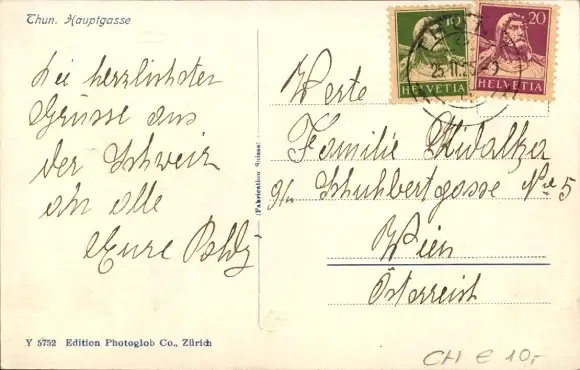 Thun. Hauptgasse
Die herzlichsten
Grüsse aus
der Schweiz
an alle
Eure
(Fabrication Suisse)
10
HELVETIA
20
HELVETIA
25.II.25
Werte
Familie
9/ Schuhbertgasse No 5
Wien
Österreich
Y 5752 Edition Photoglob Co., Zürich
CH € 10,-